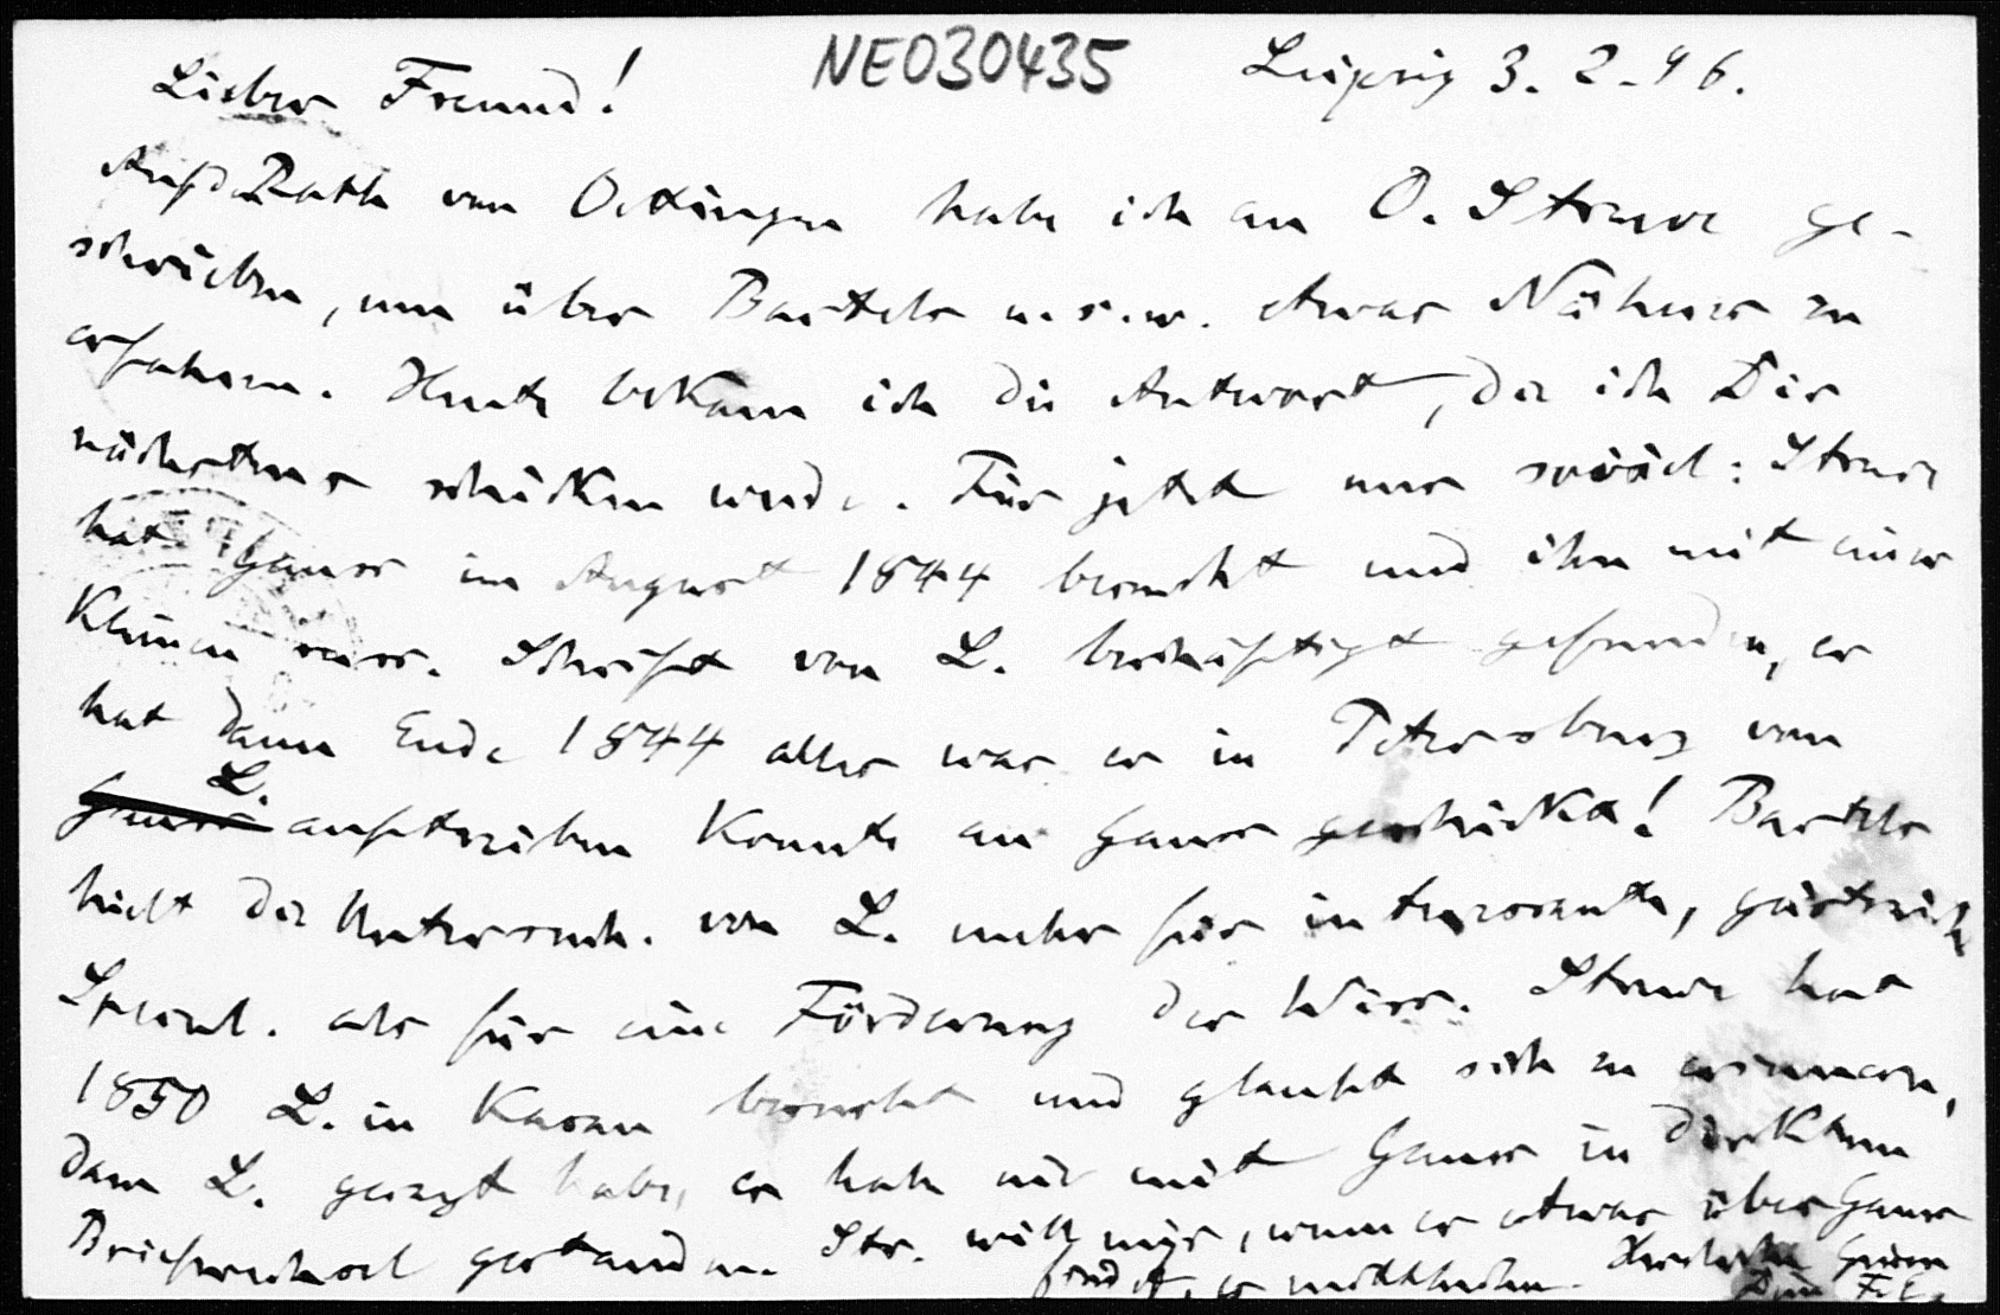 NE030435
Leipzig 3. 2. 96.
Lieber Freund!
Auf d. Rath von Oettingen habe ich an O. Struve ge-
schrieben, um über Bartels u.s.w. etwas Näheres zu
erfahren. Heute bekam ich die Antwort, die ich Dir
nächstens schicken werde. Für jetzt nur soviel: Struve
hat Gauss im August 1844 besucht und ihn mit einer
kleinen russ. Schrift von L. beschäftigt gefunden, er
hat dann Ende 1844 alles was er in Petersburg von
L.
Gauss auftreiben konnte an Gauss geschickt! Bartels
hielt die Untersuch. von L. mehr für interessante, geistreiche
Specul. als für eine Förderung der Wiss. Struve hat
1850 L. in Kasan besucht und glaubt sich zu erinnern,
dass L. gesagt habe, er habe nie mit Gauss in direktem
Briefwechsel gestanden. Str. will mir, wenn er etwas über Gauss
findet, es mittheilen. Herzliche Grüsse
Dein F. E.